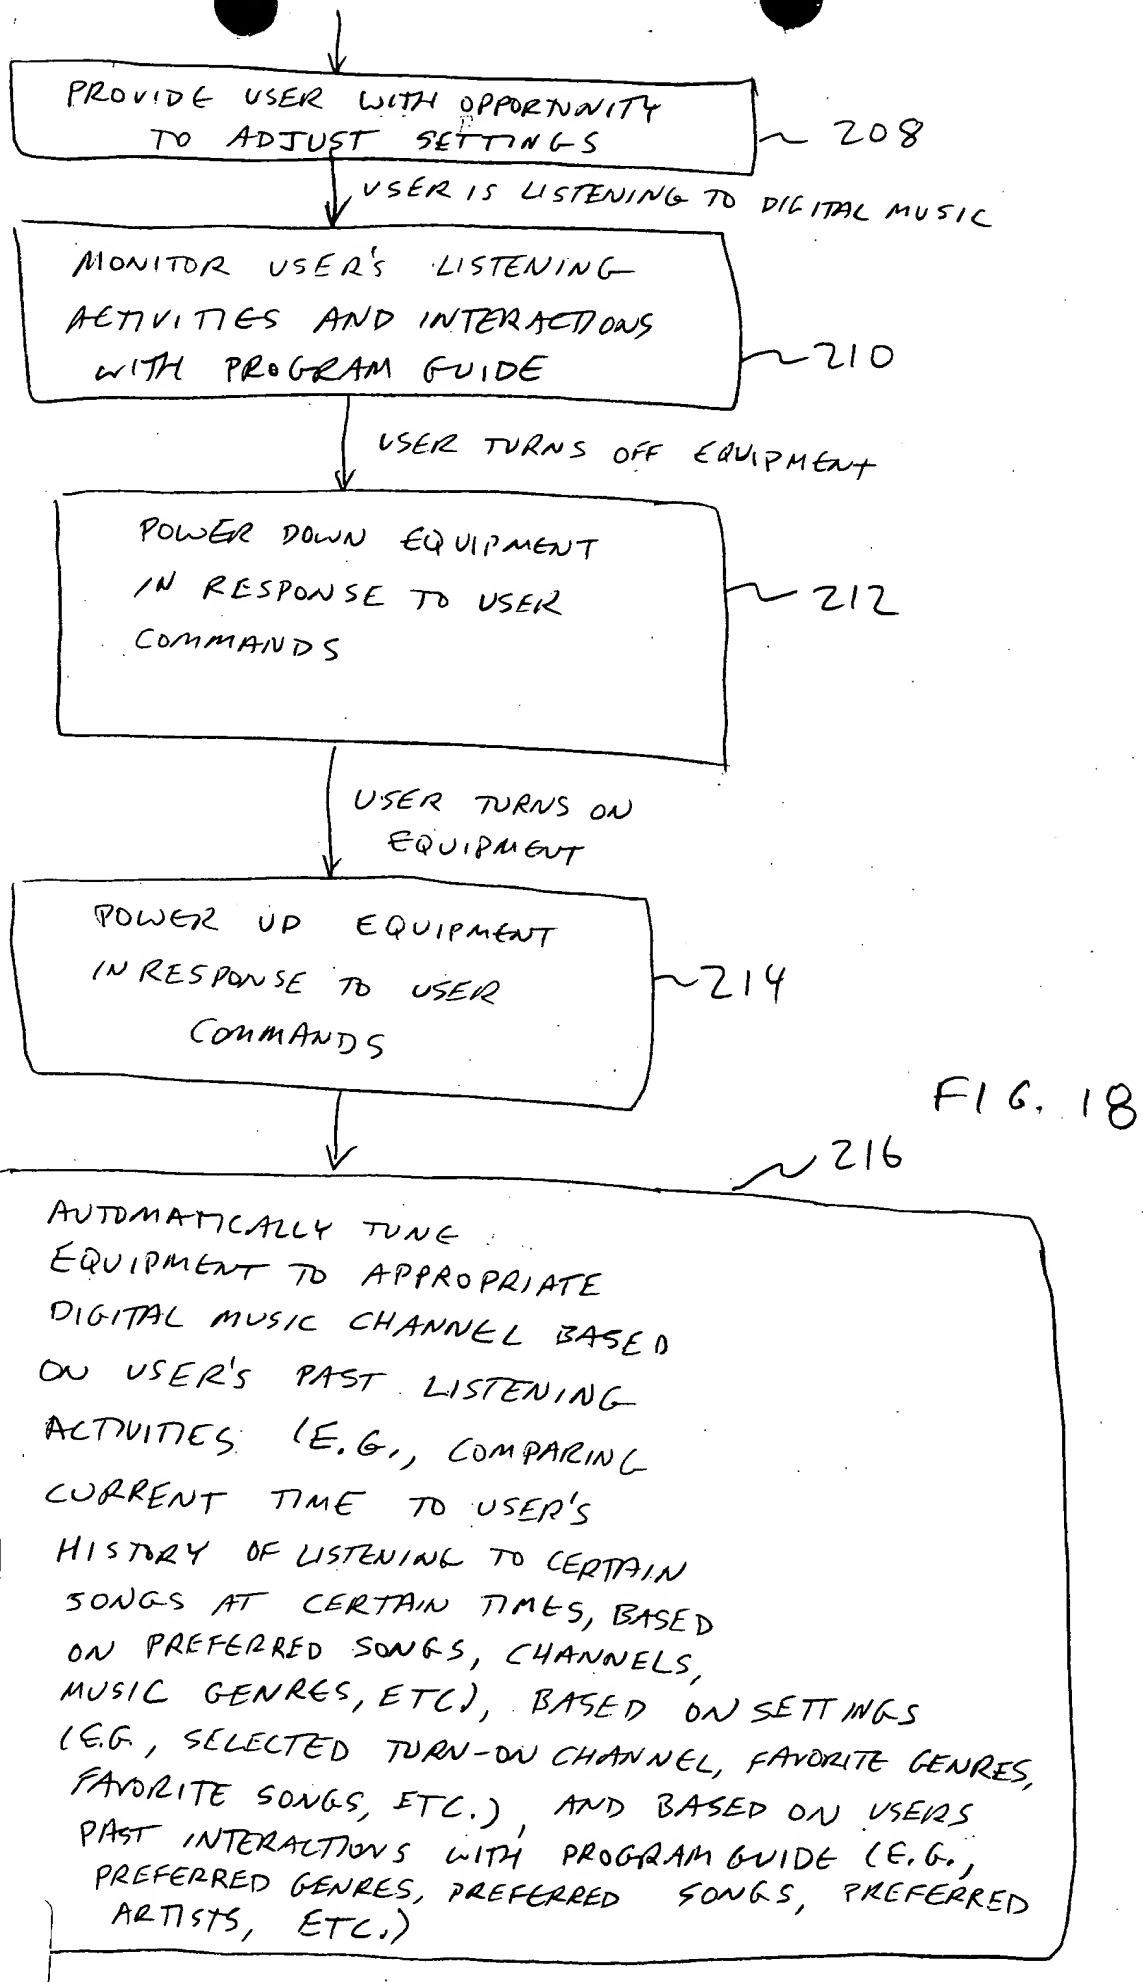 PROVIDE USER WITH OPPORTUNITY
TO ADJUST SETTINGS
208
USER IS LISTENING TO DIGITAL MUSIC
MONITOR USER'S LISTENING
ACTIVITIES AND INTERACTIONS
WITH PROGRAM GUIDE
210
USER TURNS OFF EQUIPMENT
POWER DOWN EQUIPMENT
IN RESPONSE TO USER
COMMANDS
212
USER TURNS ON
EQUIPMENT
POWER UP EQUIPMENT
IN RESPONSE TO USER
COMMANDS
214
FIG. 18
216
AUTOMATICALLY TUNE
EQUIPMENT TO APPROPRIATE
DIGITAL MUSIC CHANNEL BASED
ON USER'S PAST LISTENING
ACTIVITIES (E.G., COMPARING
CURRENT TIME TO USER'S
HISTORY OF LISTENING TO CERTAIN
SONGS AT CERTAIN TIMES, BASED
ON PREFERRED SONGS, CHANNELS,
MUSIC GENRES, ETC), BASED ON SETTINGS
(E.G., SELECTED TURN-ON CHANNEL, FAVORITE GENRES,
FAVORITE SONGS, ETC.), AND BASED ON USERS
PAST INTERACTIONS WITH PROGRAM GUIDE (E.G.,
PREFERRED GENRES, PREFERRED SONGS, PREFERRED
ARTISTS, ETC.)